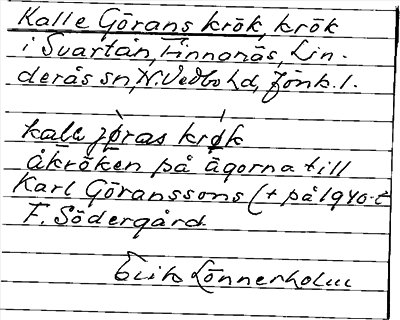 Kalle Görans krök, krök
i Svartån, Finnanäs, Lin-
derås sn, N. Vedbo hd, Jönk. l.
kalle jøras krøk
åkröken på ägorna till
Karl Göranssons († på 1940-t
F. Södergård
Erik Lönnerholm